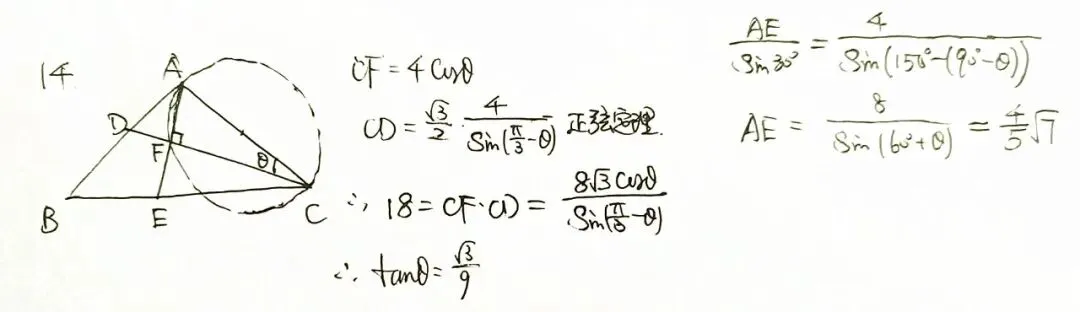 14
A
D
F
θ
B
E
C
CF = 4 cosθ
CD = \frac{\sqrt{3}}{2} \cdot \frac{4}{Sin(\frac{π}{3}-θ)} 正弦定理.
∴ 18 = CF·CD = \frac{8\sqrt{3} cosθ}{Sin(\frac{π}{3}-θ)}
∴ tanθ = \frac{\sqrt{3}}{9}
\frac{AE}{Sin30°} = \frac{4}{Sin(150°-(90°-θ))}
AE = \frac{8}{Sin(60°+θ)} = \frac{4}{5}\sqrt{7}